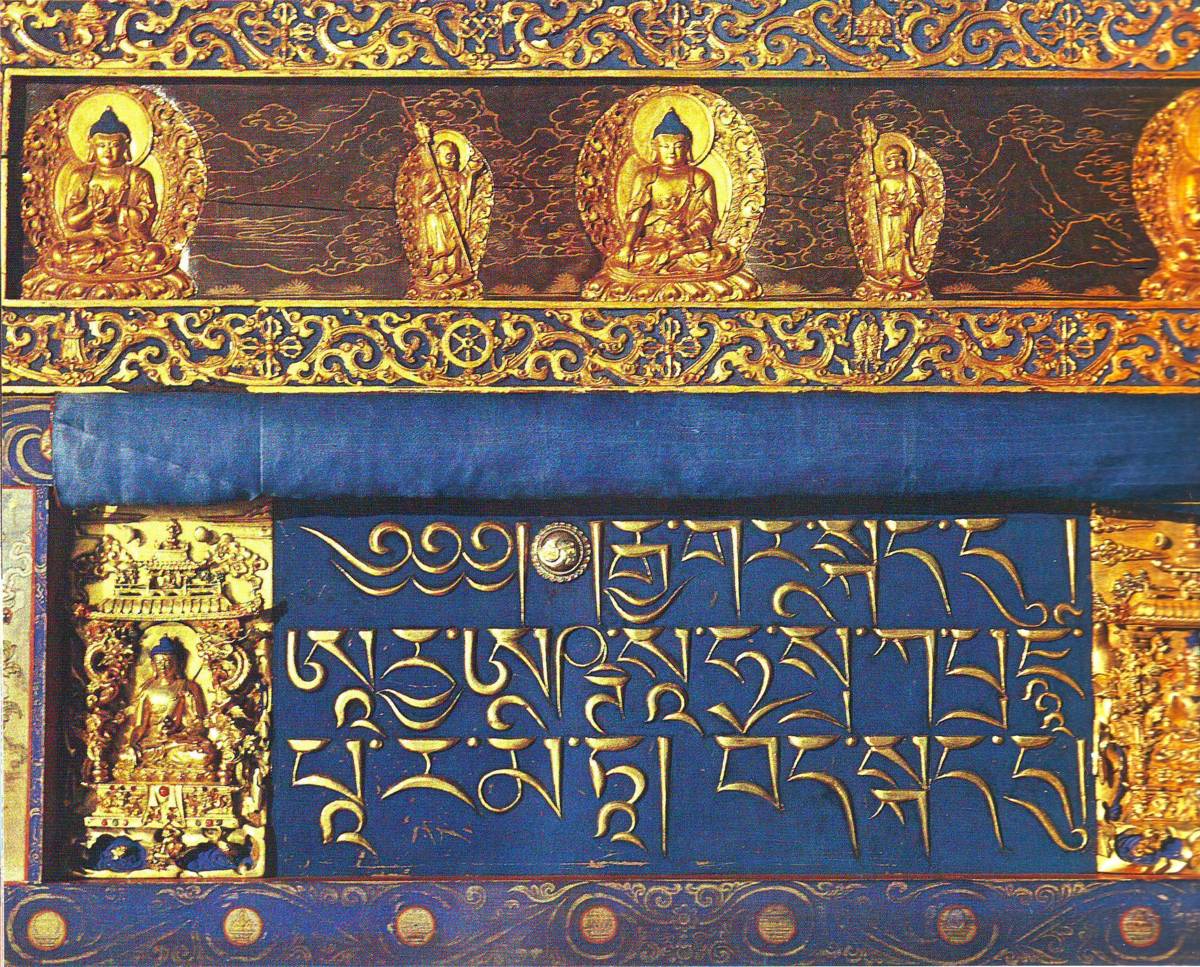 ༄༅༅། །རྒྱ་གར་སྐད་དུ།
ཨཱརྱ་ཨཥྚ་སཱ་ཧ་སྲ་ཀ་པྲ་ཛྙཱ་
པཱ་ར་མ་ཏཱ། བད་སྐད་དུ།